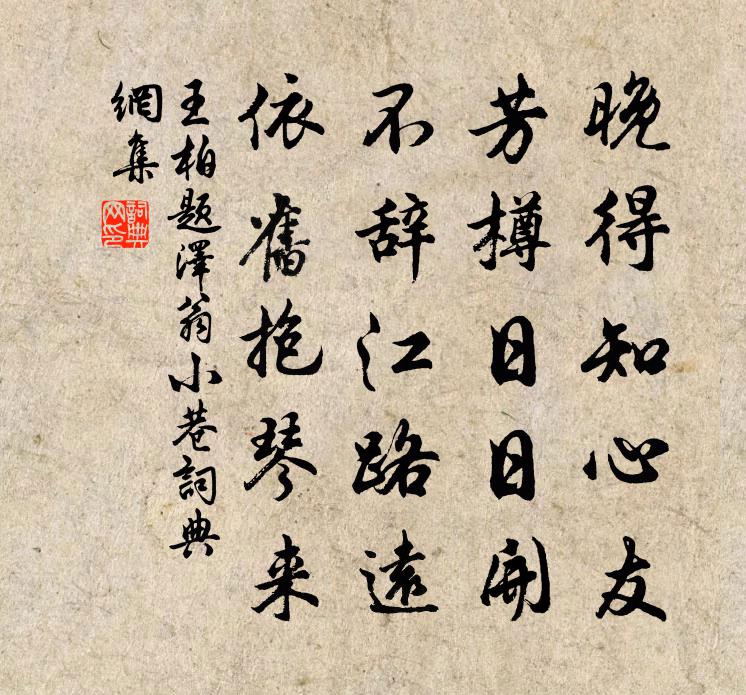 晚得知心友
芳樽日日開
不辞江路遠
依舊抱琴来
王柏題澤翁小巷詞典
網集
詞典
网印